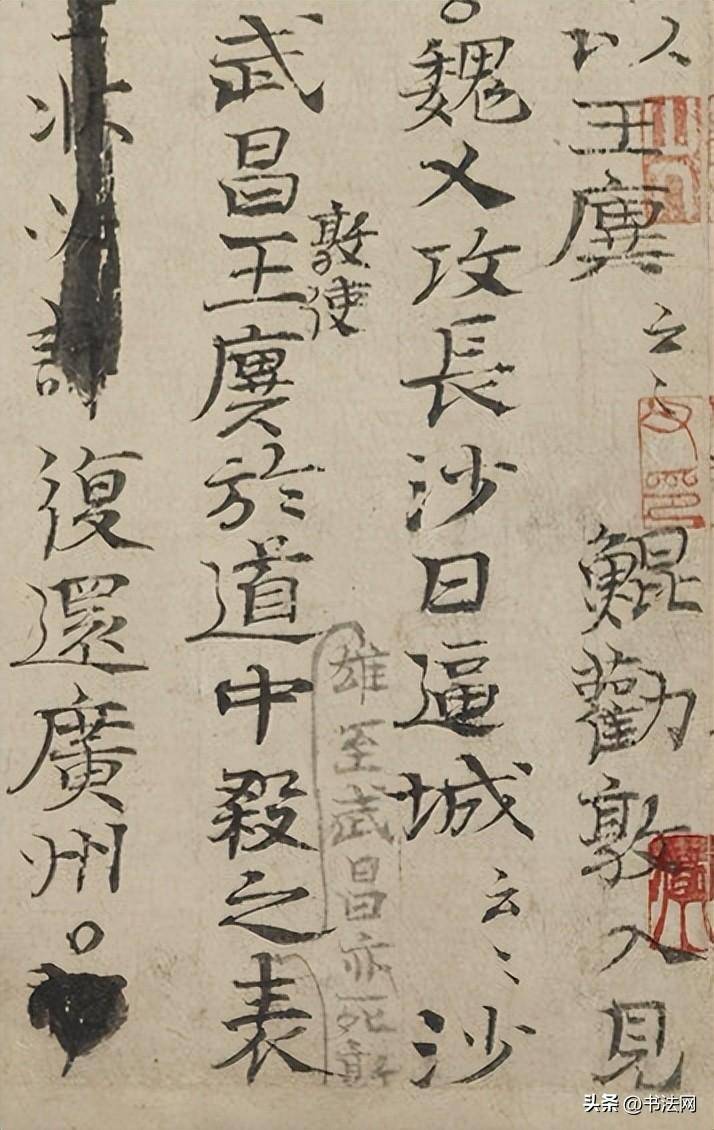 以王廙云〻鯤勸敦入見
。魏乂攻長沙日逼城云〻沙
敦使
雄至武昌亦死
武昌王廙於道中殺之表
復還廣州。
头条 @书法网